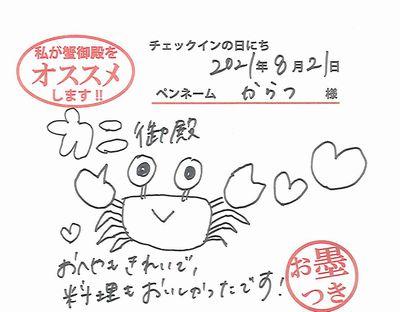 私が蟹御殿を
オススメ
します!!
チェックインの日にち
2021年8月21日
ペンネーム からつ 様
カニ御殿
おへやもきれいで、
料理もおいしかったです!
お墨
つき